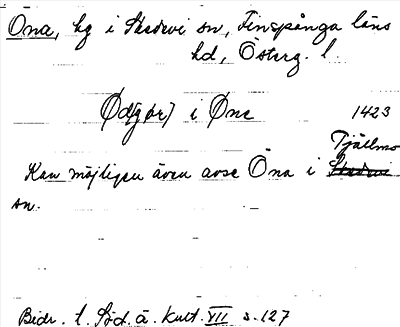 Öna, hg i Skedevi sn, Finspånga läns
hd, Österg. l.
Ød(gør) i Øne 1423
Tjällmo
Kan möjligen även avse Öna i Skedevi
sn.
Bidr. t. Söd. ä. kult. VII s. 127